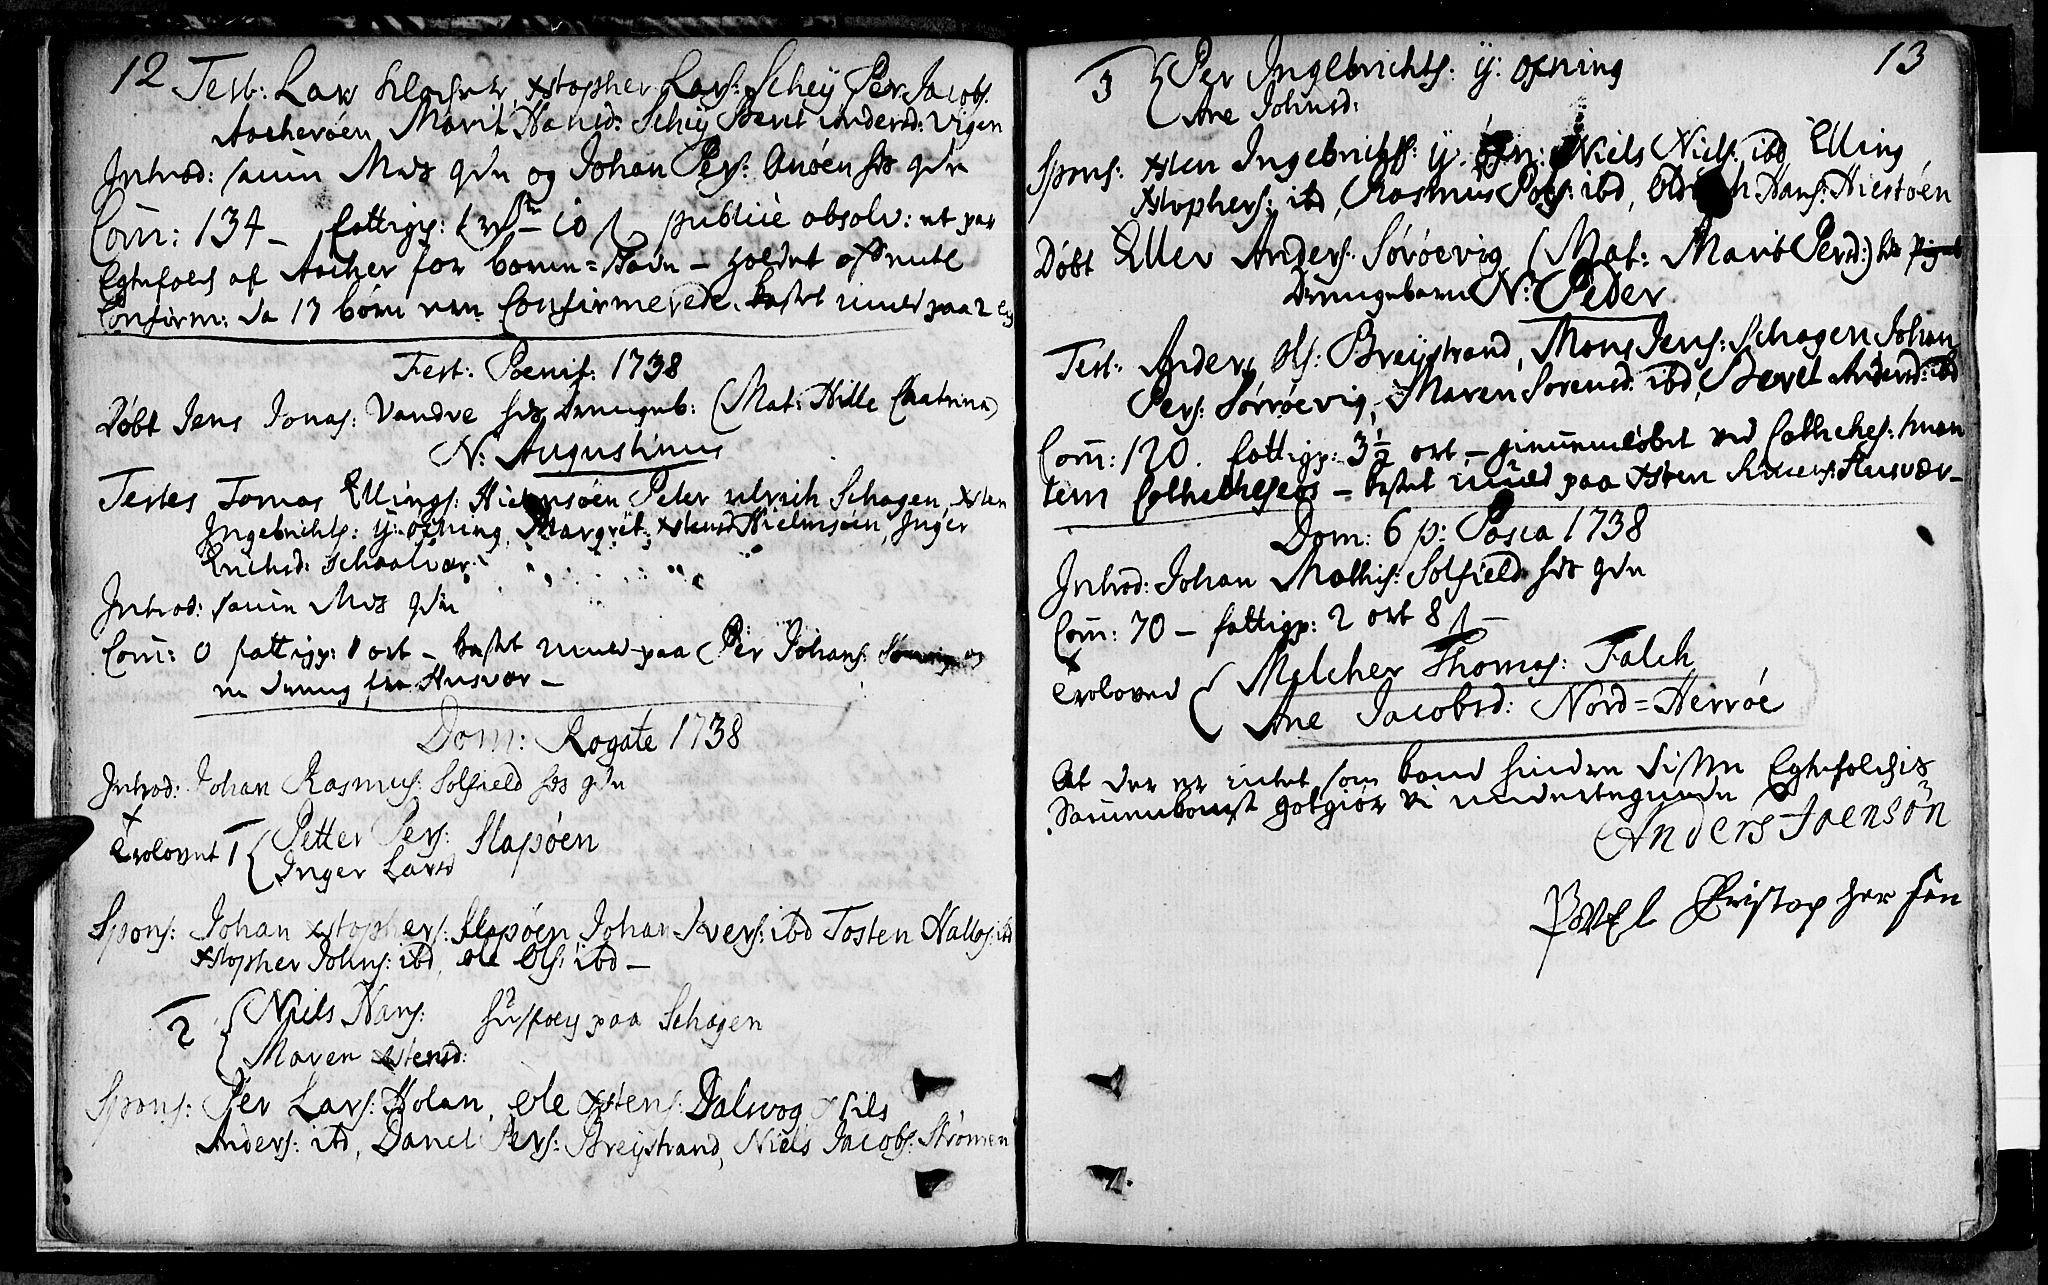 12
Test: Lars Klocher, xstopher Lars: Schey Per Jacobs:
Aacherøen, Marit Hansd: Schey Beret Andersd: Vigen
Introd: samme Mds qvin og Johan Pers: Anøen hs qvin
Com: 134 – fattigp: publice absolv: et par
Egtefolch af Aacher for barn
Confirm: da 13 børn confirmerede. paa 2
Fest: Poenit: 1738
Døbt Jens Jonas: Vandve hs drengeb: (Mat: Hille Chatrina)
N: Augustinus
Testes Tomas Ellings: Hielmsøen Peter ulrich Schagen, xsten
Ingebrichts: ÿ: ofning, Margret xstensd Hielmsøen, Inger
Erichsd: Schaalvær
Introd: samme Mds qvin
Com: 0 fattigp: 1 ort – kastet muld paa Per Johans: og
en dreng fra Husvær –
Dom: Rogate 1738
Introd: Johan Rasmus: Solfield hs qvin
Trolovet 1 { Petter Pers: Slapøen
Inger Larsd
Spons: Johan xstophers: Slapøen Johan Ivers: ibd Tosten Hallos: ibd
xstopher Johns: ibd, ole Ols: ibd –
2 { Niels Hans: husfolch paa Schagen
Maren xstensd:
Spons: Per Lars: Holan, ole xstens: Dalsvog Nils
Anders: ibd, Danel Pers: Breÿstrand, Niels Jacobs: Strømen
13
3 { Per Ingebrichts: ÿ: ofning
Ane Johnsd:
Spons: xsten Ingebrichts: ÿ: Niels Niels: ibd, Elling
xstophers: ibd, Rasmus Pols: ibd, Hans: Hiestøen
Døbt Eller Anders: Sørøevig (Mat: Marit Persd:) hs
drengebarn N: Peder
Test: Anders Ols: Breÿstrand, Mons Jens: Schagen Johan
Pers: Sørrøevig, Maren Sorensd: ibd, Beret Andersd: ibd
Com: 120. fattigp: 3½ ort – ved
– kastet muld paa xsten Husvær –
Dom: 6 p: Pasca 1738
Introd: Johan Mathis: Solfield hs qvin
Com: 70 – fattigp: 2 ort 8 s –
Troloved { Melcher Thomas: Falch
Ane Jacobsd: Nord=Herrøe
At der er intet, som kand hindre disse Egtefolchis
Sammenkomst gotgiør vi undertegnede
Anders Joensøn
Povel Cristophersen